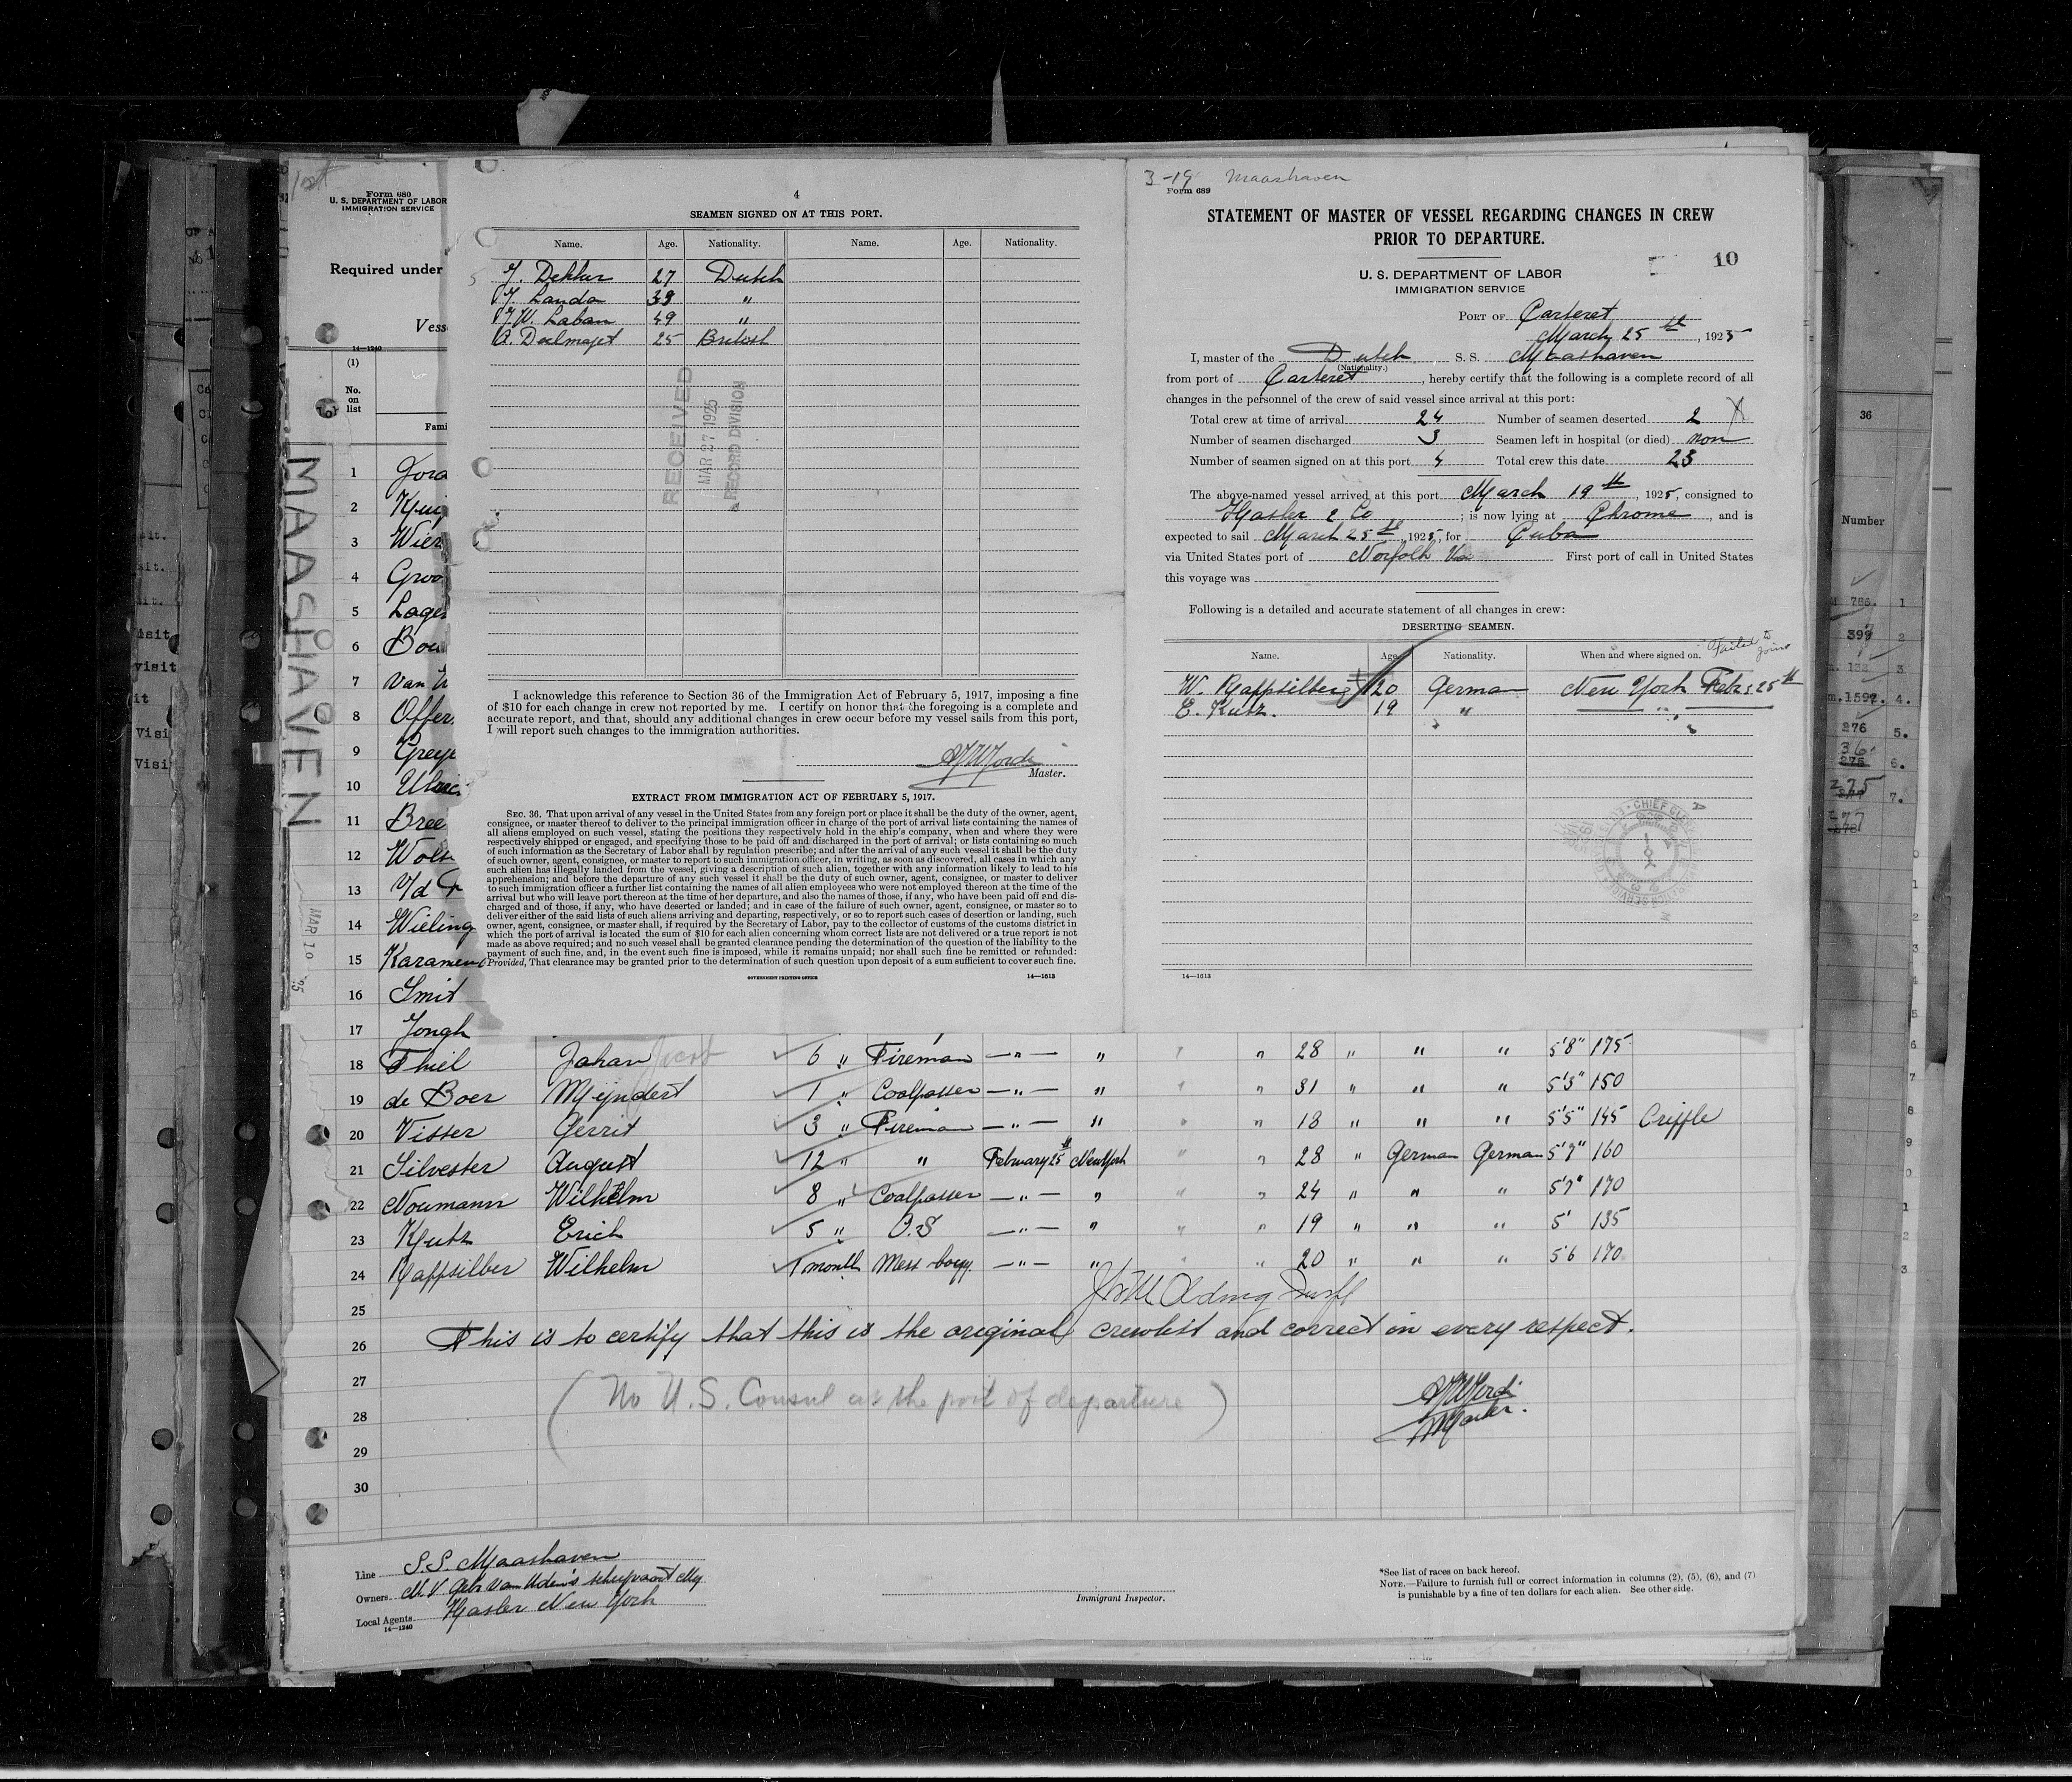 Form 680
U. S. DEPARTMENT OF LABOR
IMMIGRATION SERVICE
Required under
Vess
14—1240
(1)
No.
on
list
Fami
MAASHAVEN
1
2
3 Wier
4 Groo
5 Lager
6 Bou
7 Van
8 Offer
9
10
11 Bree
12
13 V/d
14 Wieling
15 Karamen
16 Smit
17 Jongh
4
SEAMEN SIGNED ON AT THIS PORT.
Name. Age. Nationality. Name. Age. Nationality.
J. Dekker 27 Dutch
J. Landa 39 "
J. W. Laban 49 "
A. 25 British
RECEIVED
MAR 27 1925
RECORD DIVISION
I acknowledge this reference to Section 36 of the Immigration Act of February 5, 1917, imposing a fine
of $10 for each change in crew not reported by me. I certify on honor that the foregoing is a complete and
accurate report, and that, should any additional changes in crew occur before my vessel sails from this port,
I will report such changes to the immigration authorities.
Master.
EXTRACT FROM IMMIGRATION ACT OF FEBRUARY 5, 1917.
SEC. 36. That upon arrival of any vessel in the United States from any foreign port or place it shall be the duty of the owner, agent,
consignee, or master thereof to deliver to the principal immigration officer in charge of the port of arrival lists containing the names of
all aliens employed on such vessel, stating the positions they respectively hold in the ship's company, when and where they were
respectively shipped or engaged, and specifying those to be paid off and discharged in the port of arrival; or lists containing so much
of such information as the Secretary of Labor shall by regulation prescribe; and after the arrival of any such vessel it shall be the duty
of such owner, agent, consignee, or master to report to such immigration officer, in writing, as soon as discovered, all cases in which any
such alien has illegally landed from the vessel, giving a description of such alien, together with any information likely to lead to his
apprehension; and before the departure of any such vessel it shall be the duty of such owner, agent, consignee, or master to deliver
to such immigration officer a further list containing the names of all alien employees who were not employed thereon at the time of the
arrival but who will leave port thereon at the time of her departure, and also the names of those, if any, who have been paid off and dis-
charged and of those, if any, who have deserted or landed; and in case of the failure of such owner, agent, consignee, or master so to
deliver either of the said lists of such aliens arriving and departing, respectively, or so to report such cases of desertion or landing, such
owner, agent, consignee, or master shall, if required by the Secretary of Labor, pay to the collector of customs of the customs district in
which the port of arrival is located the sum of $10 for each alien concerning whom correct lists are not delivered or a true report is not
made as above required; and no such vessel shall be granted clearance pending the determination of the question of the liability to the
payment of such fine, and, in the event such fine is imposed, while it remains unpaid; nor shall such fine be remitted or refunded:
Provided, That clearance may be granted prior to the determination of such question upon deposit of a sum sufficient to cover such fine.
GOVERNMENT PRINTING OFFICE 14—1613
3-19 Maashaven
Form 689
STATEMENT OF MASTER OF VESSEL REGARDING CHANGES IN CREW
PRIOR TO DEPARTURE.
10
U. S. DEPARTMENT OF LABOR
IMMIGRATION SERVICE
PORT OF Carteret
March 25th, 1925
I, master of the Dutch S. S. Maashaven
(Nationality.)
from port of Carteret, hereby certify that the following is a complete record of all
changes in the personnel of the crew of said vessel since arrival at this port:
Total crew at time of arrival 24 Number of seamen deserted 2
Number of seamen discharged 3 Seamen left in hospital (or died) non
Number of seamen signed on at this port 4 Total crew this date 23
The above-named vessel arrived at this port March 19th, 1925, consigned to
Hasler & Co; is now lying at Chrome, and is
expected to sail March 25th, 1925, for Cuba
via United States port of Norfolk Va First port of call in United States
this voyage was
Following is a detailed and accurate statement of all changes in crew:
DESERTING SEAMEN.
Failed to join
Name. Age. Nationality. When and where signed on.
W. Raffsilber 20 German New York Febr 25th
E. Kutz. 19 " "
14—1613
18 Thiel Johan Jacob 6 " Fireman —"— " " 28 " " " 5'8" 175
19 de Boer Mijndert 1 " Coalpasser —"— " " 31 " " " 5'3" 150
20 Visser Gerrit 3 " Fireman —"— " " 18 " " " 5'5" 145 Criffle
21 Silvester August 12 " " February 25th New York " " 28 " German German 5'7" 160
22 Noumann Wilhelm 8 " Coalpasser —"— " " " 24 " " " 5'7" 170
23 Kutz Erich 5 " O.S —"— " " " 19 " " " 5' 135
24 Raffsilber Wilhelm 1 month Mess boy —"— " " " 20 " " " 5'6 170
25
26 This is to certify that this is the original crewlist and correct in every respect.
27
28 (No U.S. Consul at the port of departure)
Master.
29
30
Line S.S. Maashaven
Owners N.V. Gebr Van Uden's scheepvaart My
Local Agents Hasler New York
14—1240
Immigrant Inspector.
*See list of races on back hereof.
NOTE.—Failure to furnish full or correct information in columns (2), (5), (6), and (7)
is punishable by a fine of ten dollars for each alien. See other side.
36
Number